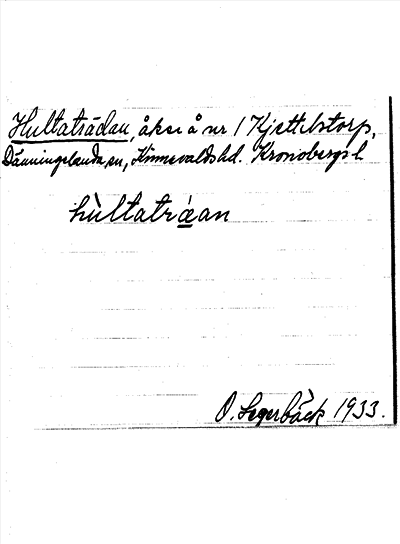 Hultaträdan, åker å nr 1 Kjettilstorp,
Dänningelanda sn, Kinnevalds hd. Kronobergs l.
hùltatráan
O. Segerbäck 1933.